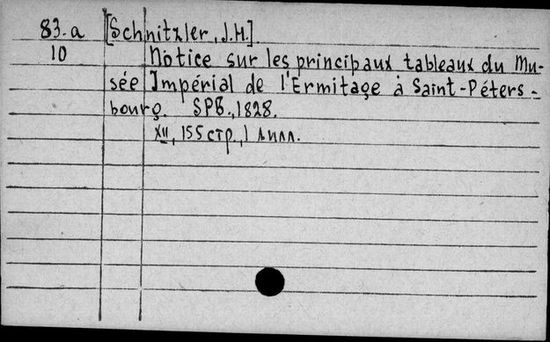 83.a [Schnitzler, J.H.]
10 Notice sur les principaux tableaux du Mu-
sée Impérial de l'Ermitage à Saint-Péters-
bourg. SPB., 1828.
XII, 155 стр., 1 л илл.